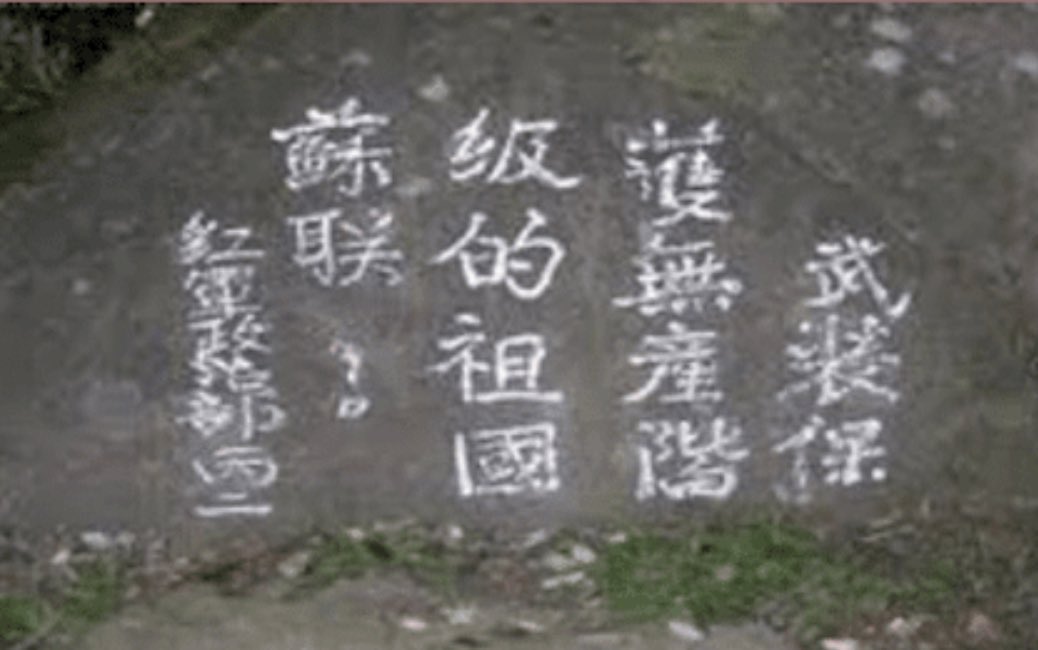 武裝保
護無産階
级的祖國
蘇联！
紅軍政治部四二